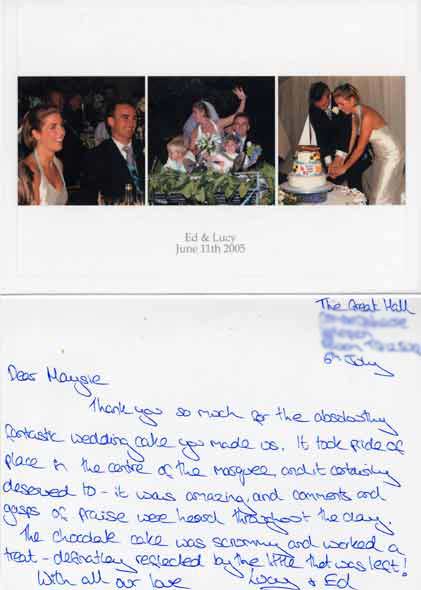 Ed & Lucy
June 11th 2005
The Great Hall
6th July
Dear Maysie
Thank you so much for the absolutley
fantastic wedding cake you made us. It took pride of
place in the centre of the marquee, and it certainly
deserved to - it was amazing, and comments and
gasps of praise were heard throughout the day.
The chocolate cake was scrummy and worked a
treat - definatley reflected by the little that was left!
With all our love Lucy & Ed